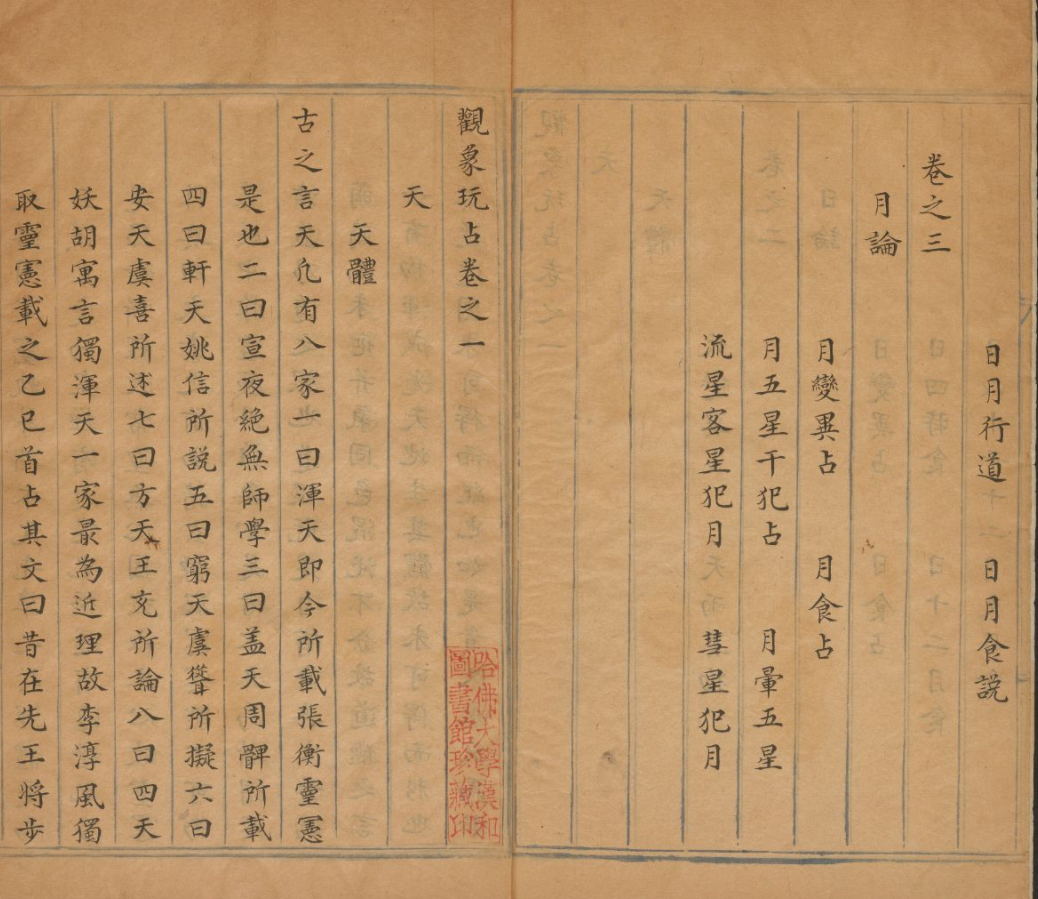 日月行道　日月食説
卷之三
月論
月變異占　月食占
月五星干犯占　月暈五星
流星客星犯月　彗星犯月
觀象玩占卷之一
天
天體
古之言天凡有八家一曰渾天即今所載張衡靈憲
是也二曰宣夜絶無師學三曰盖天周髀所載
四曰軒天姚信所説五曰窮天虞聳所擬六曰
安天虞喜所述七曰方天王充所論八曰四天
妖胡寓言獨渾天一家最為近理故李淳風獨
取靈憲載之乙巳首占其文曰昔在先王将步
哈佛大學漢和
圖書館珍藏印